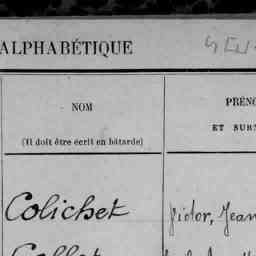 ALPHABÉTIQUE
NOM
(Il doit être écrit en bâtarde)
PRÉNO
ET SURN
Colichet
Victor, Jean